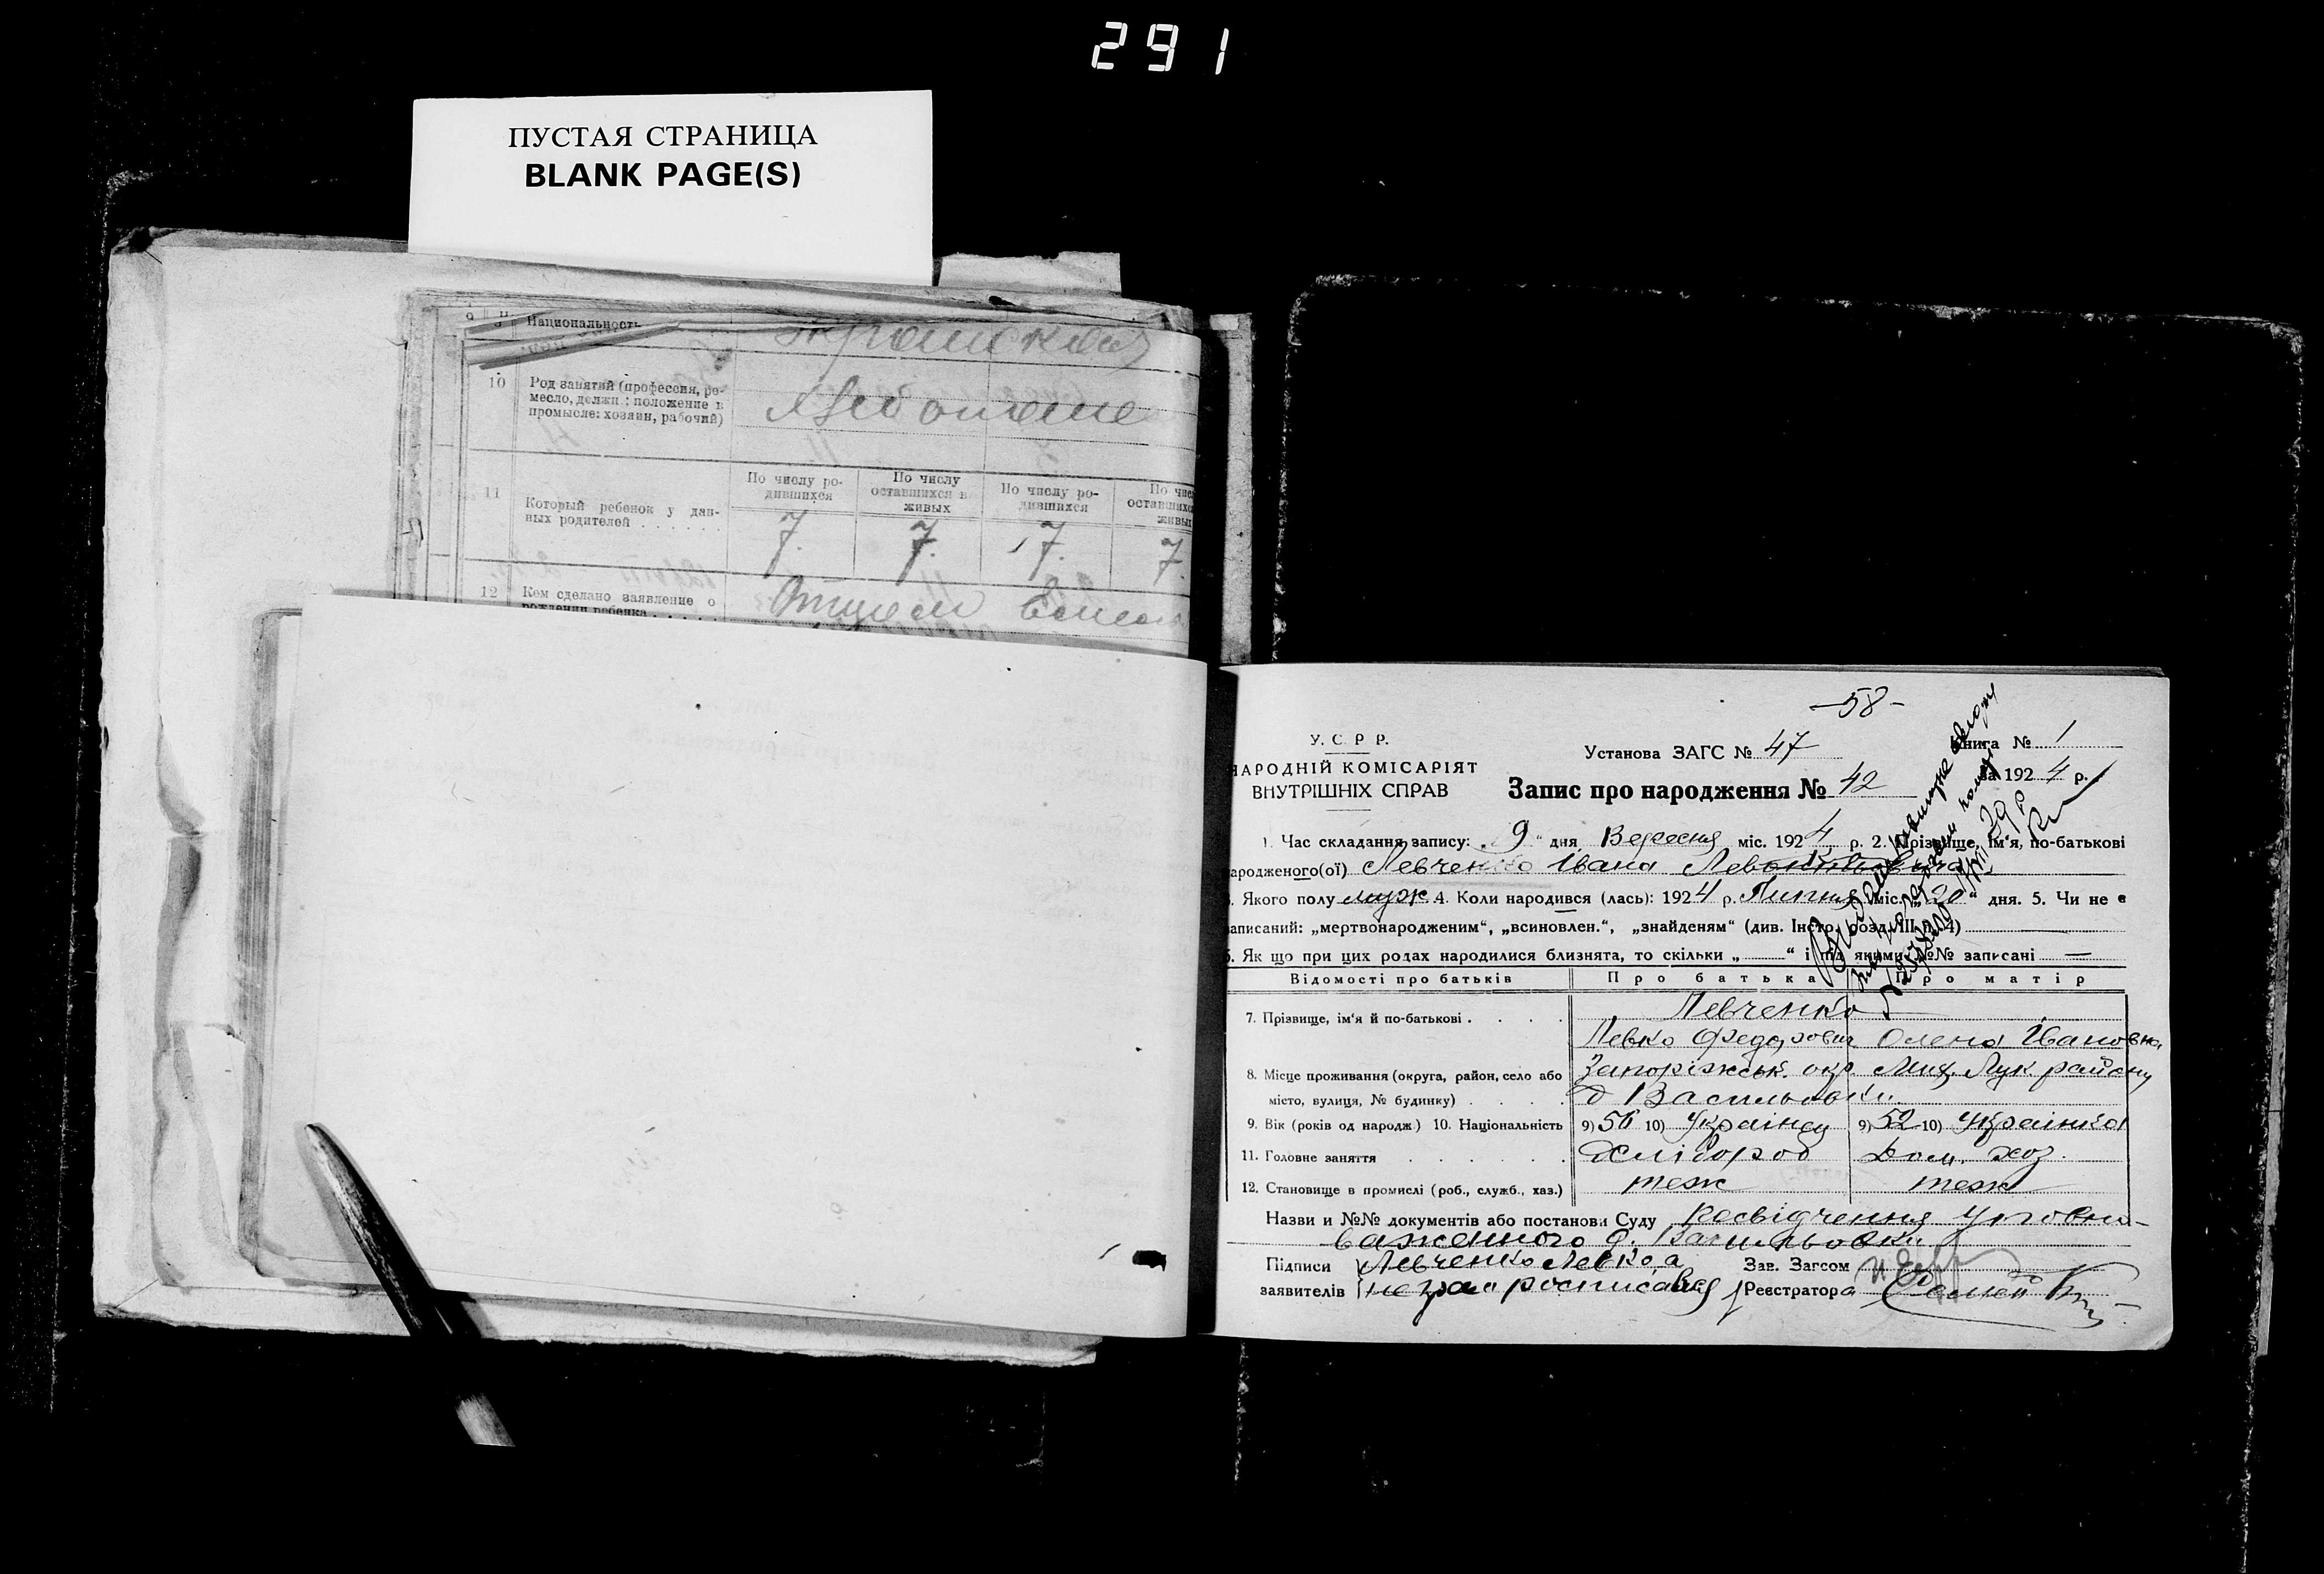 291
ПУСТАЯ СТРАНИЦА
BLANK PAGE(S)
9 Национальность
10 Род занятий (професcия, ре-
месло, должн.: положение в
промысле: хозяин, рабочий)
11 Который ребенок у дан-
ных родителей . . . . . .
По числу ро-
дившихся
По числу
оставшихся в
живых
По числу ро-
дившихся
По чис
оставшихс
живы
7. 7. 7. 7.
12 Кем сделано заявление о
рождении ребенка . . . . .
Отцем
-58-
У. С. Р. Р.
НАРОДНІЙ КОМІСАРІЯТ
ВНУТРІШНІХ СПРАВ
Установа ЗАГС № 47
Книга № 1
за 1924 р.
Запис про народження № 42
1. Час складання запису: „9“ дня Вересня міс. 1924 р. 2. Прізвище, ім'я, по-батькові
ародженого(ої) Левченко Івана
3. Якого полу муж 4. Коли народився (лась): 1924 р. Липня міс. „20“ дня. 5. Чи не є
записаний: „мертвонародженим“, „всиновлен.“, „знайденям“ (див. Інстр. розд. III п. 4)
6. Як що при цих родах народилися близнята, то скільки „ “ і під якими №№ записані —
Відомості про батьків Про батька Про матір
7. Прізвище, ім'я й по-батькові . . . .
Левченко
Левко Федорович Олена Івановна
8. Місце проживання (округа, район, село або
місто, вулиця, № будинку) . . . .
Запоріжськ. окр. Мих. Лук. району
д Васильовки
9. Вік (років од народж.) 10. Національність 9) 56 10) Українец 9) 52 10) Українка
11. Головне заняття . . . . . Хлібороб Дом. хоз.
12. Становище в промислі (роб., служб., хаз.) теж теж
Назви и №№ документів або постанови Суду Посвідчення уповно-
важенного д. Васильовки
Підписи Левченко Левко, а Зав. Загсом
заявителів не гра росписався Реєстратора